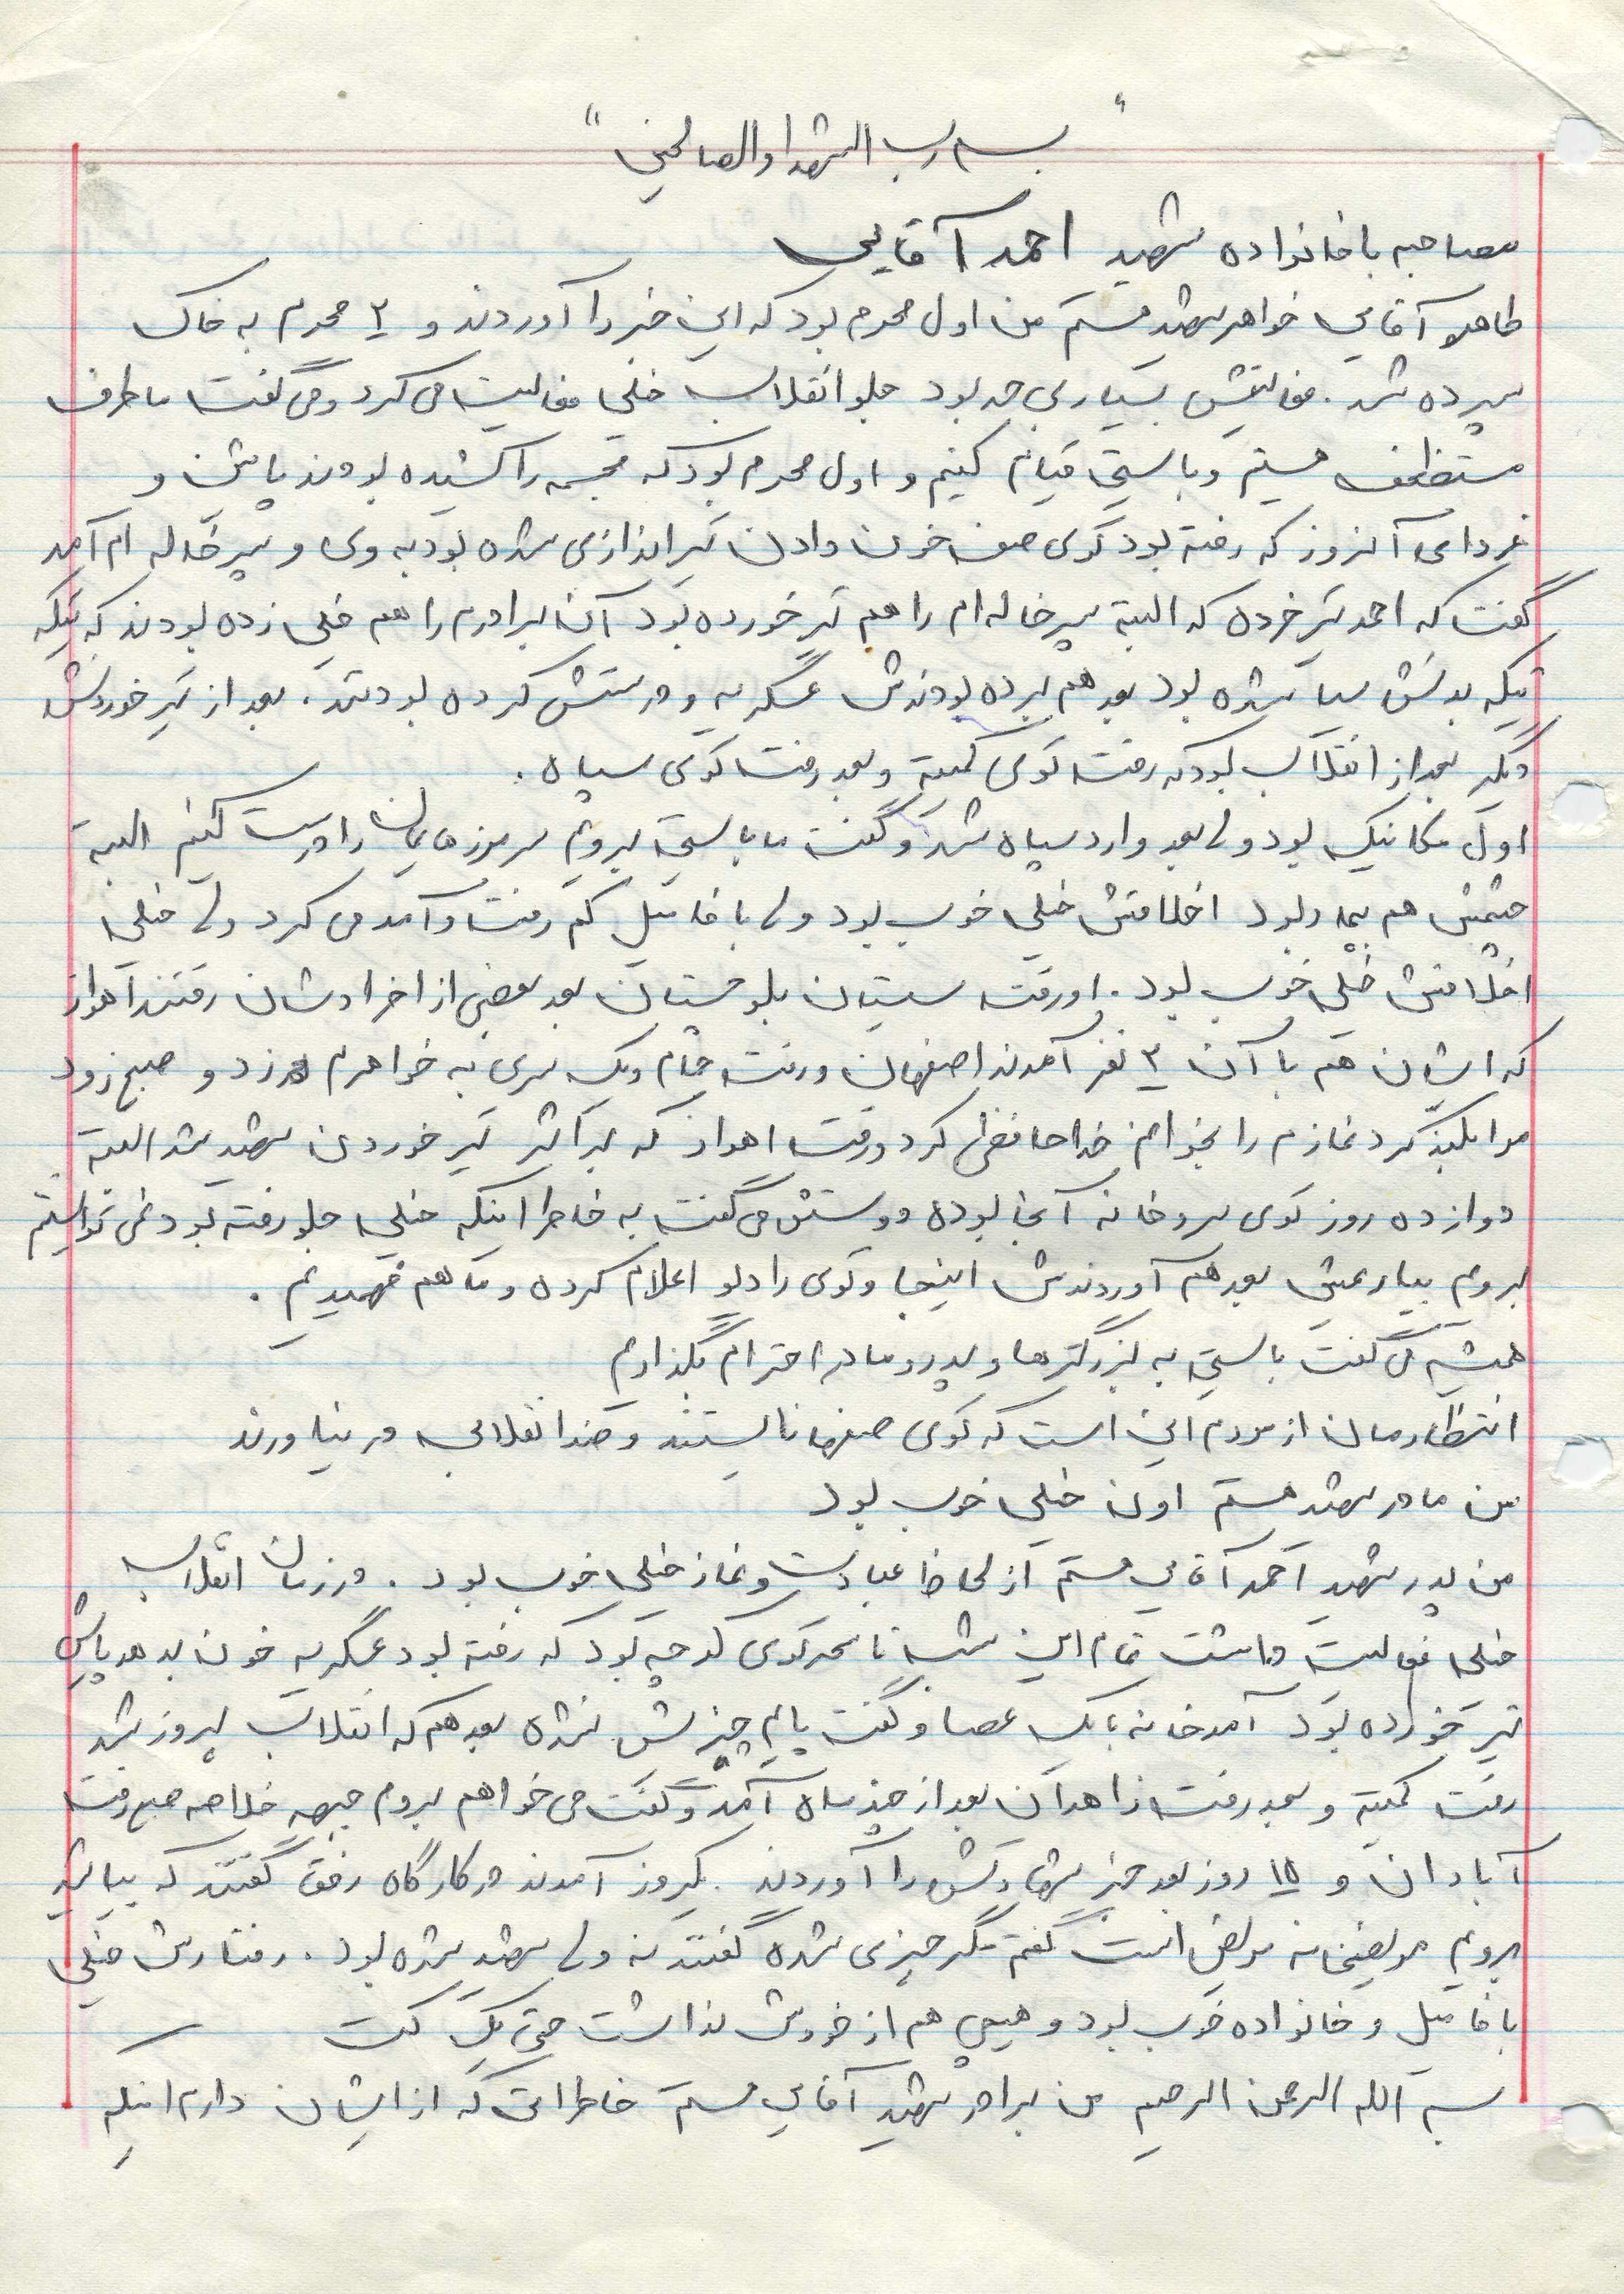 "بسم رب الشهدا والصالحین"
مصاحبه با خانواده شهید احمد آقایی
طاهره آقایی خواهر شهید هستم من اول محرم بود که این خبر را آوردند و ۲ محرم به خاک
سپرده شد. فعالیتش بسیار بی حد بود جلو انقلاب خیلی فعالیت می کرد و می گفت ما طرف
مستضعف هستیم و بایستی قیام کنیم و اول محرم بود که مجسمه را کشیده بودند پائین و
فردای آنروز که رفته بود توی صف خون دادن تیراندازی شده بود به وی و پسرخاله ام آمد
گفت که احمد تیر خرده که البته پسرخاله ام را هم تیر خورده بود آن برادرم را هم خیلی زده بودند که تیکه
تیکه بدنش سیاه شده بود بعد هم برده بودندش عسگریه و درستش کرده بودند. بعد از تیر خوردنش
دیگر بعد از انقلاب بود که رفت توی کمیته و بعد رفت توی سپاه.
اول مکانیک بود ولی بعد وارد سپاه شد و گفت ما بایستی برویم مرزهایمان را درست کنیم البته
چشمش هم بیمار بود اخلاقش خیلی خوب بود ولی با فامیل کم رفت و آمد می کرد ولی خیلی
اخلاقش خیلی خوب بود. او رفت سیستان بلوچستان بعد بعضی از افرادشان رفتند اهواز
که ایشان هم با آن ۳ نفر آمدند اصفهان و رفت حمام و یک سری به خواهرم زد و صبح زود
مرا بلند کرد نمازم را بخوانم خداحافظی کرد و رفت اهواز که بر اثر تیر خوردن شهید شد البته
دوازده روز توی سردخانه آنجا بوده دوستش می گفت به خاطر اینکه خیلی جلو رفته بود نمی توانستم
بروم بیارمش بعد هم آوردندش اینجا و توی رادیو اعلام کرده و ما هم فهمیدیم.
همیشه می گفت بایستی به بزرگترها و پدر و مادر احترام بگذاریم
انتظارمان از مردم این است که توی صفها نایستند و ضدانقلابی در نیاورند
من مادر شهید هستم اون خیلی خوب بود
من پدر شهید احمد آقایی هستم از لحاظ عبادت و نماز خیلی خوب بود. در زمان انقلاب
خیلی فعالیت داشت تمام این شب تا سحر توی کوچه بود که رفته بود عسگریه خون بدهد پاش
تیر خورده بود آمد خانه با یک عصا و گفت پایم چیزش نشده بعد هم که انقلاب پیروز شد
رفت کمیته و بعد رفت زاهدان بعد از چند ماه آمد و گفت می خواهم بروم جبهه خلاصه صبح رفت
آبادان و ۱۵ روز بعد خبر شهادتش را آوردند. یکروز آمدند در کارگاه رفق گفتند که بیائید
برویم مریضخانه مریض است گفتم مگر چیزی شده گفتند نه ولی شهید شده بود. رفتارش خیلی
با فامیل و خانواده خوب بود و هیچی هم از خودش نداشت حتی یک کت
بسم الله الرحمن الرحیم من برادر شهید آقایی هستم خاطراتی که از ایشان دارم اینکه